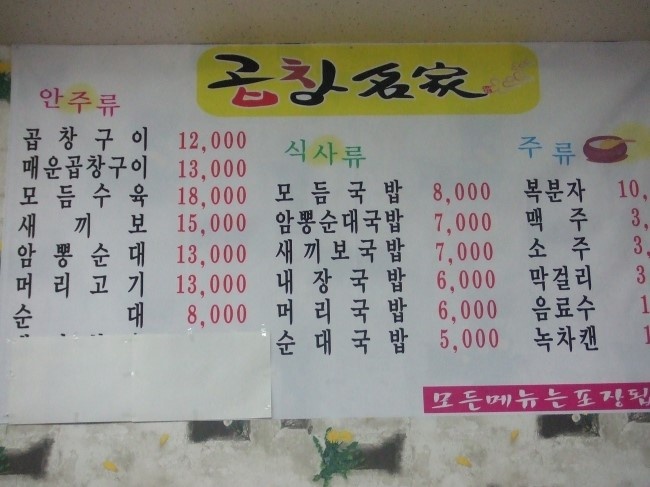 곱창名家
안주류
곱창구이 12,000
매운곱창구이 13,000
모듬수육 18,000
새끼보 15,000
암뽕순대 13,000
머리고기 13,000
순대 8,000
식사류
모듬국밥 8,000
암뽕순대국밥 7,000
새끼보국밥 7,000
내장국밥 6,000
머리국밥 6,000
순대국밥 5,000
주류
복분자 10,
맥주 3,
소주 3,
막걸리 3
음료수 1
녹차캔 1
모든메뉴는포장됩